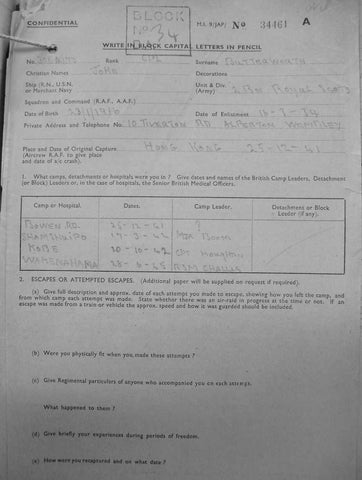 CONFIDENTIAL
BLOCK
No 34
M.I. 9/JAP/ No 34461 A
WRITE IN BLOCK CAPITAL LETTERS IN PENCIL
No. Rank CPL Surname BUTTERWORTH
Christian Names JOHN Decorations
Ship (R.N., U.S.N. or Merchant Navy Unit & Div. (Army) 2 BN ROYAL SCOTS
Squadron and Command (R.A.F., A.A.F.)
Date of Birth 23/1/1916 Date of Enlistment 16-3-34
Private Address and Telephone No. 10 TIVERTON RD ALPERTON WEMBLEY
Place and Date of Original Capture HONG KONG 25-12-41
(Aircrew R.A.F. to give place
and date of a/c crash).
1. What camps, detachments or hospitals were you in? Give dates and names of the British Camp Leaders, Detachment
(or Block) Leaders or, in the case of hospitals, the Senior British Medical Officers.
Camp or Hospital. Dates. Camp Leader. Detachment or Block Leader (if any).
BOWEN RD. 25-12-41 ?
SHAMSHUIPO 17-3-42 MJR BOON
KOBE 20-10-42 HOUGHTON
WAKENAHAMA 28-6-45 RSM
2. ESCAPES OR ATTEMPTED ESCAPES. (Additional paper will be supplied on request if required).
(a) Give full description and approx. date of each attempt you made to escape, showing how you left the camp, and
from which camp each attempt was made. State whether there was an air-raid in progress at the time or not. If an
escape was made from a train or vehicle the approx. speed and how it was guarded should be included.
(b) Were you physically fit when you made these attempts?
(c) Give Regimental particulars of anyone who accompanied you on each attempt.
What happened to them?
(d) Give briefly your experiences during periods of freedom.
(e) How were you recaptured and on what date?